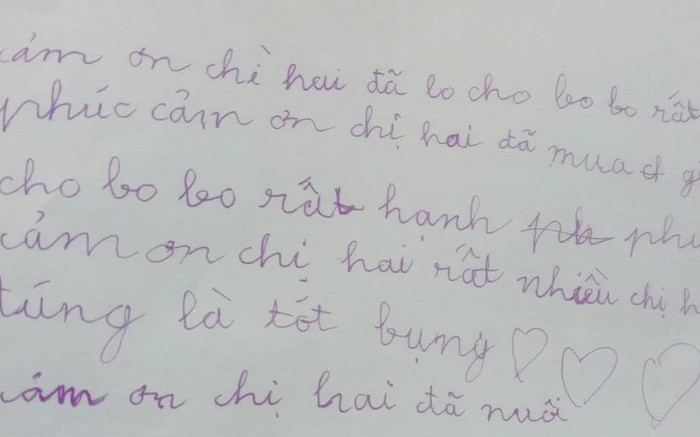 cảm ơn chỉ hai đã lo cho bo bo rất
phúc cảm ơn chị hai đã mua
cho bo bo rất hạnh phú
cảm ơn chị hai rất nhiều chị h
túng là tốt bụng
cảm ơn chị hai đã nuôi